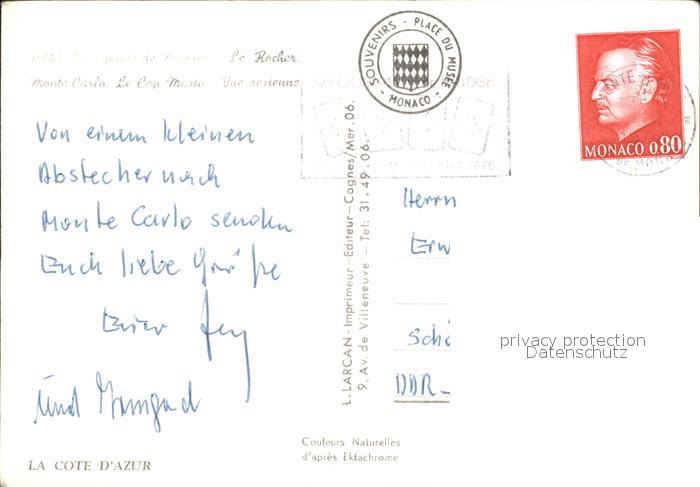 Le Rocher.
Monte-Carlo. Le Cap Martin Vue aérienne
Von einem kleinen
Abstecher nach
Monte Carlo senden
Euch liebe Grüße
Euer
Und Irmgard
LA COTE D'AZUR
SOUVENIRS - PLACE DU MUSÉE - MONACO -
L. LARCAN - Imprimeur - Editeur - Cagnes/Mer. 06.
9, Av. de Villeneuve - Tel: 31. 49. 06.
Couleurs Naturelles
d'après Ektachrome
MONACO 0,80
Herrn
Erw
Schö
DDR-
privacy protection
Datenschutz